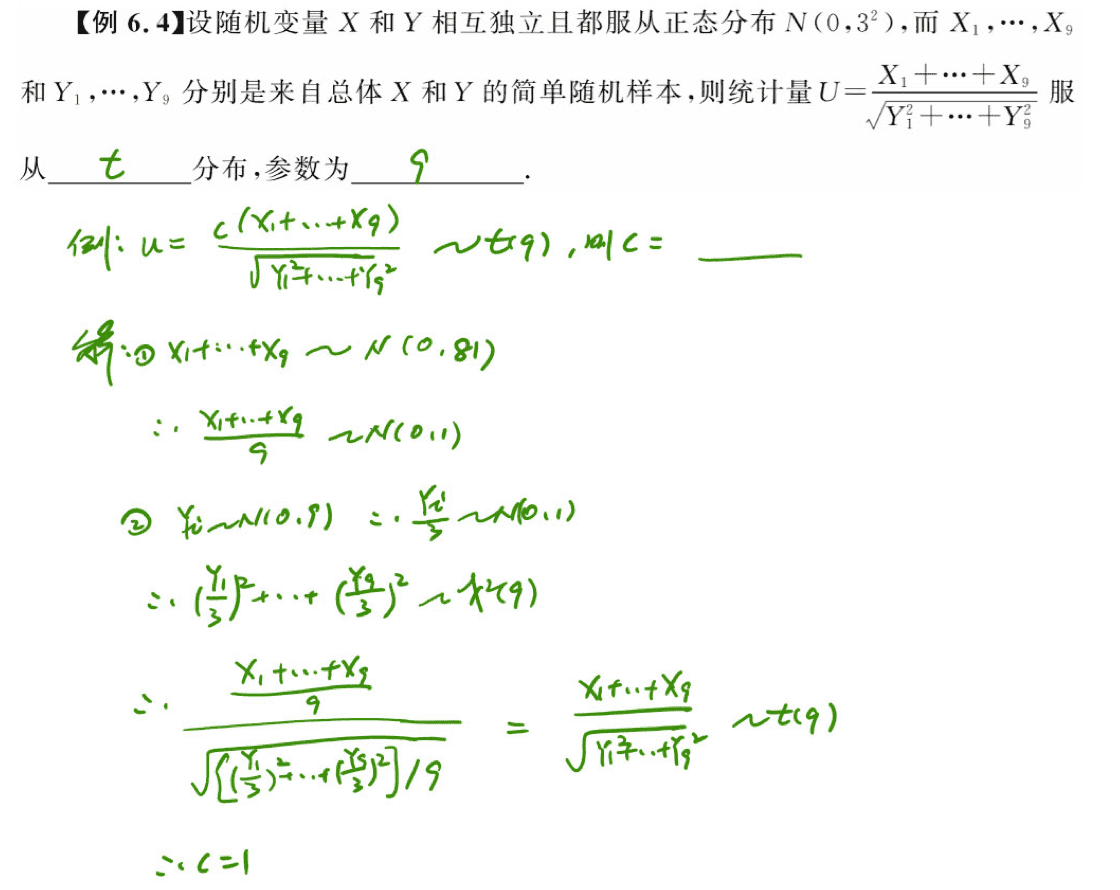 【例 6.4】设随机变量 X 和 Y 相互独立且都服从正态分布 N(0,3²),而 X₁,⋯,X₉
和 Y₁,⋯,Y₉ 分别是来自总体 X 和 Y 的简单随机样本,则统计量 U=(X₁+⋯+X₉)/√(Y₁²+⋯+Y₉²) 服
从 t 分布,参数为 9 .
例: u = c(X₁+⋯+X₉)/√(Y₁²+⋯+Y₉²) ~ t(9), 则 c = ____
解:① X₁+⋯+X₉ ~ N(0,81)
∴ (X₁+⋯+X₉)/9 ~ N(0,1)
② Yᵢ ~ N(0,9) ∴ Yᵢ/3 ~ N(0,1)
∴ (Y₁/3)²+⋯+(Y₉/3)² ~ χ²(9)
∴ ((X₁+⋯+X₉)/9)/√([(Y₁/3)²+⋯+(Y₉/3)²]/9) = (X₁+⋯+X₉)/√(Y₁²+⋯+Y₉²) ~ t(9)
∴ c=1